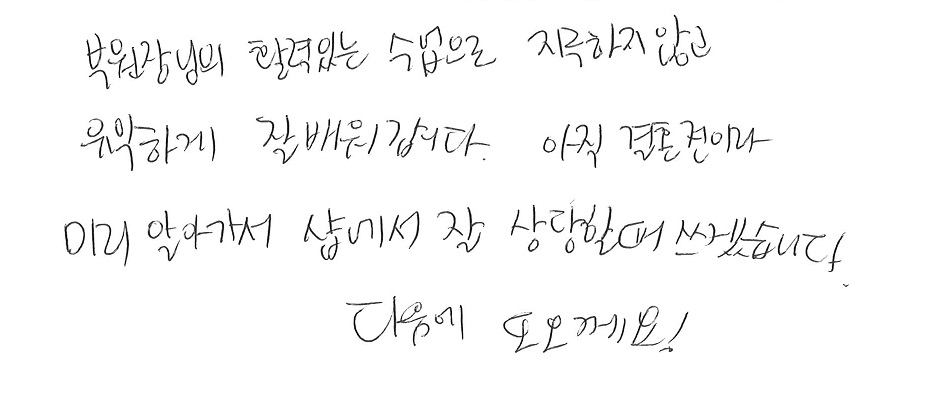 부원장님의 활력있는 수업으로 지루하지않고
유익하게 잘배워갑니다. 아직 결혼전이라
미리 알아가서 샵에서 잘 상담할때 쓰겠습니다.
다음에 또올께요!